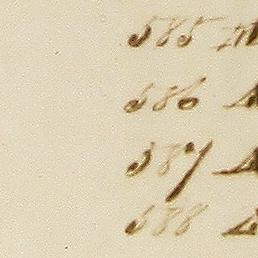 585
586
587
588